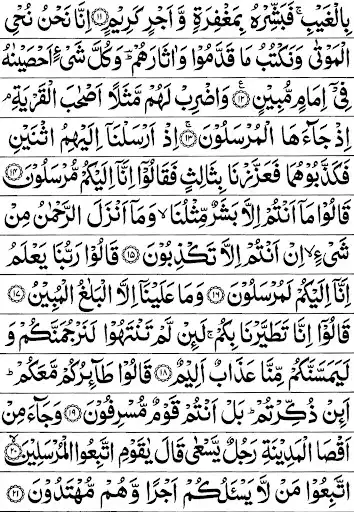 بِالْغَيْبِ ۚ فَبَشِّرْهُ بِمَغْفِرَةٍ وَّ اَجْرٍ كَرِيْمٍ ﴿۱۱﴾ اِنَّا نَحْنُ نُحْیِ
الْمَوْتٰی وَنَكْتُبُ مَا قَدَّمُوْا وَاٰثَارَهُمْ ؕ وَكُلَّ شَیْءٍ اَحْصَيْنٰهُ
فِیْۤ اِمَامٍ مُّبِيْنٍ ﴿۱۲﴾ وَاضْرِبْ لَهُمْ مَّثَلًا اَصْحٰبَ الْقَرْيَةِ ۘ
اِذْ جَآءَهَا الْمُرْسَلُوْنَ ﴿۱۳﴾ اِذْ اَرْسَلْنَاۤ اِلَيْهِمُ اثْنَيْنِ
فَكَذَّبُوْهُمَا فَعَزَّزْنَا بِثَالِثٍ فَقَالُوْۤا اِنَّاۤ اِلَيْكُمْ مُّرْسَلُوْنَ ﴿۱۴﴾
قَالُوْا مَاۤ اَنْتُمْ اِلَّا بَشَرٌ مِّثْلُنَا ۙ وَمَاۤ اَنْزَلَ الرَّحْمٰنُ مِنْ
شَیْءٍ ۙ اِنْ اَنْتُمْ اِلَّا تَكْذِبُوْنَ ﴿۱۵﴾ قَالُوْا رَبُّنَا يَعْلَمُ
اِنَّاۤ اِلَيْكُمْ لَمُرْسَلُوْنَ ﴿۱۶﴾ وَمَا عَلَيْنَاۤ اِلَّا الْبَلٰغُ الْمُبِيْنُ ﴿۱۷﴾
قَالُوْۤا اِنَّا تَطَيَّرْنَا بِكُمْ ۚ لَئِنْ لَّمْ تَنْتَهُوْا لَنَرْجُمَنَّكُمْ وَ
لَيَمَسَّنَّكُمْ مِّنَّا عَذَابٌ اَلِيْمٌ ﴿۱۸﴾ قَالُوْا طَآئِرُكُمْ مَّعَكُمْ ؕ
اَئِنْ ذُكِّرْتُمْ ؕ بَلْ اَنْتُمْ قَوْمٌ مُّسْرِفُوْنَ ﴿۱۹﴾ وَجَآءَ مِنْ
اَقْصَا الْمَدِيْنَةِ رَجُلٌ يَّسْعٰی قَالَ يٰقَوْمِ اتَّبِعُوا الْمُرْسَلِيْنَ ﴿۲۰﴾
اتَّبِعُوْا مَنْ لَّا يَسْـَٔلُكُمْ اَجْرًا وَّهُمْ مُّهْتَدُوْنَ ﴿۲۱﴾